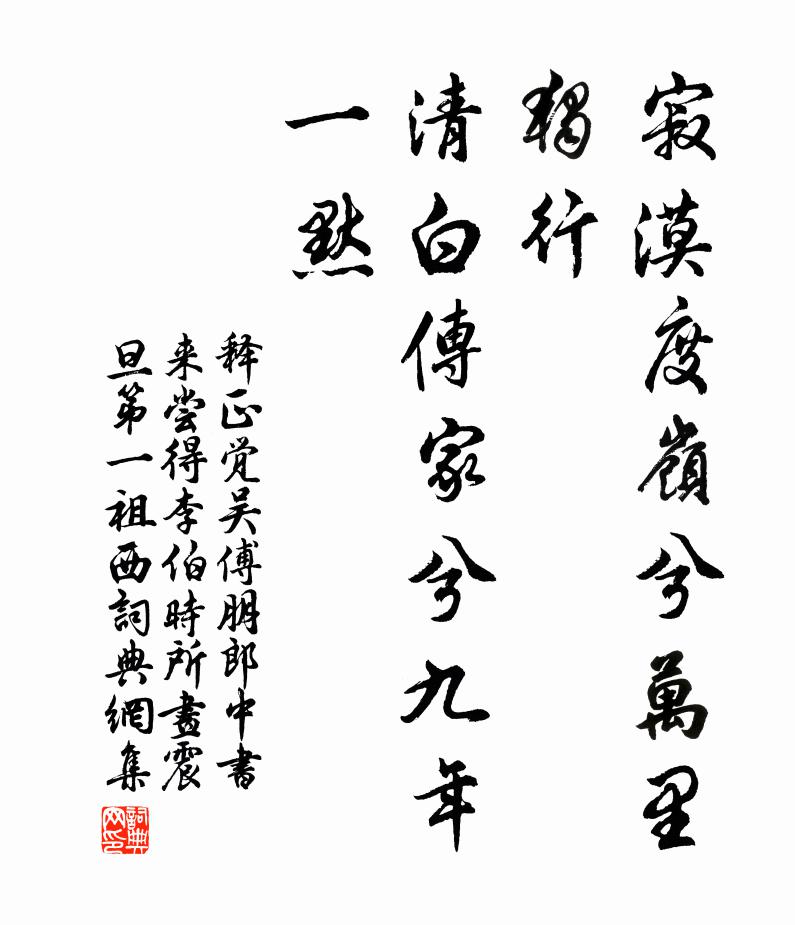 寂漠度嶺兮萬里
獨行
清白傳家兮九年
一默
释正觉吴傅朋郎中書
来尝得李伯時所畫震
旦第一祖西詞典網集
詞典
网印